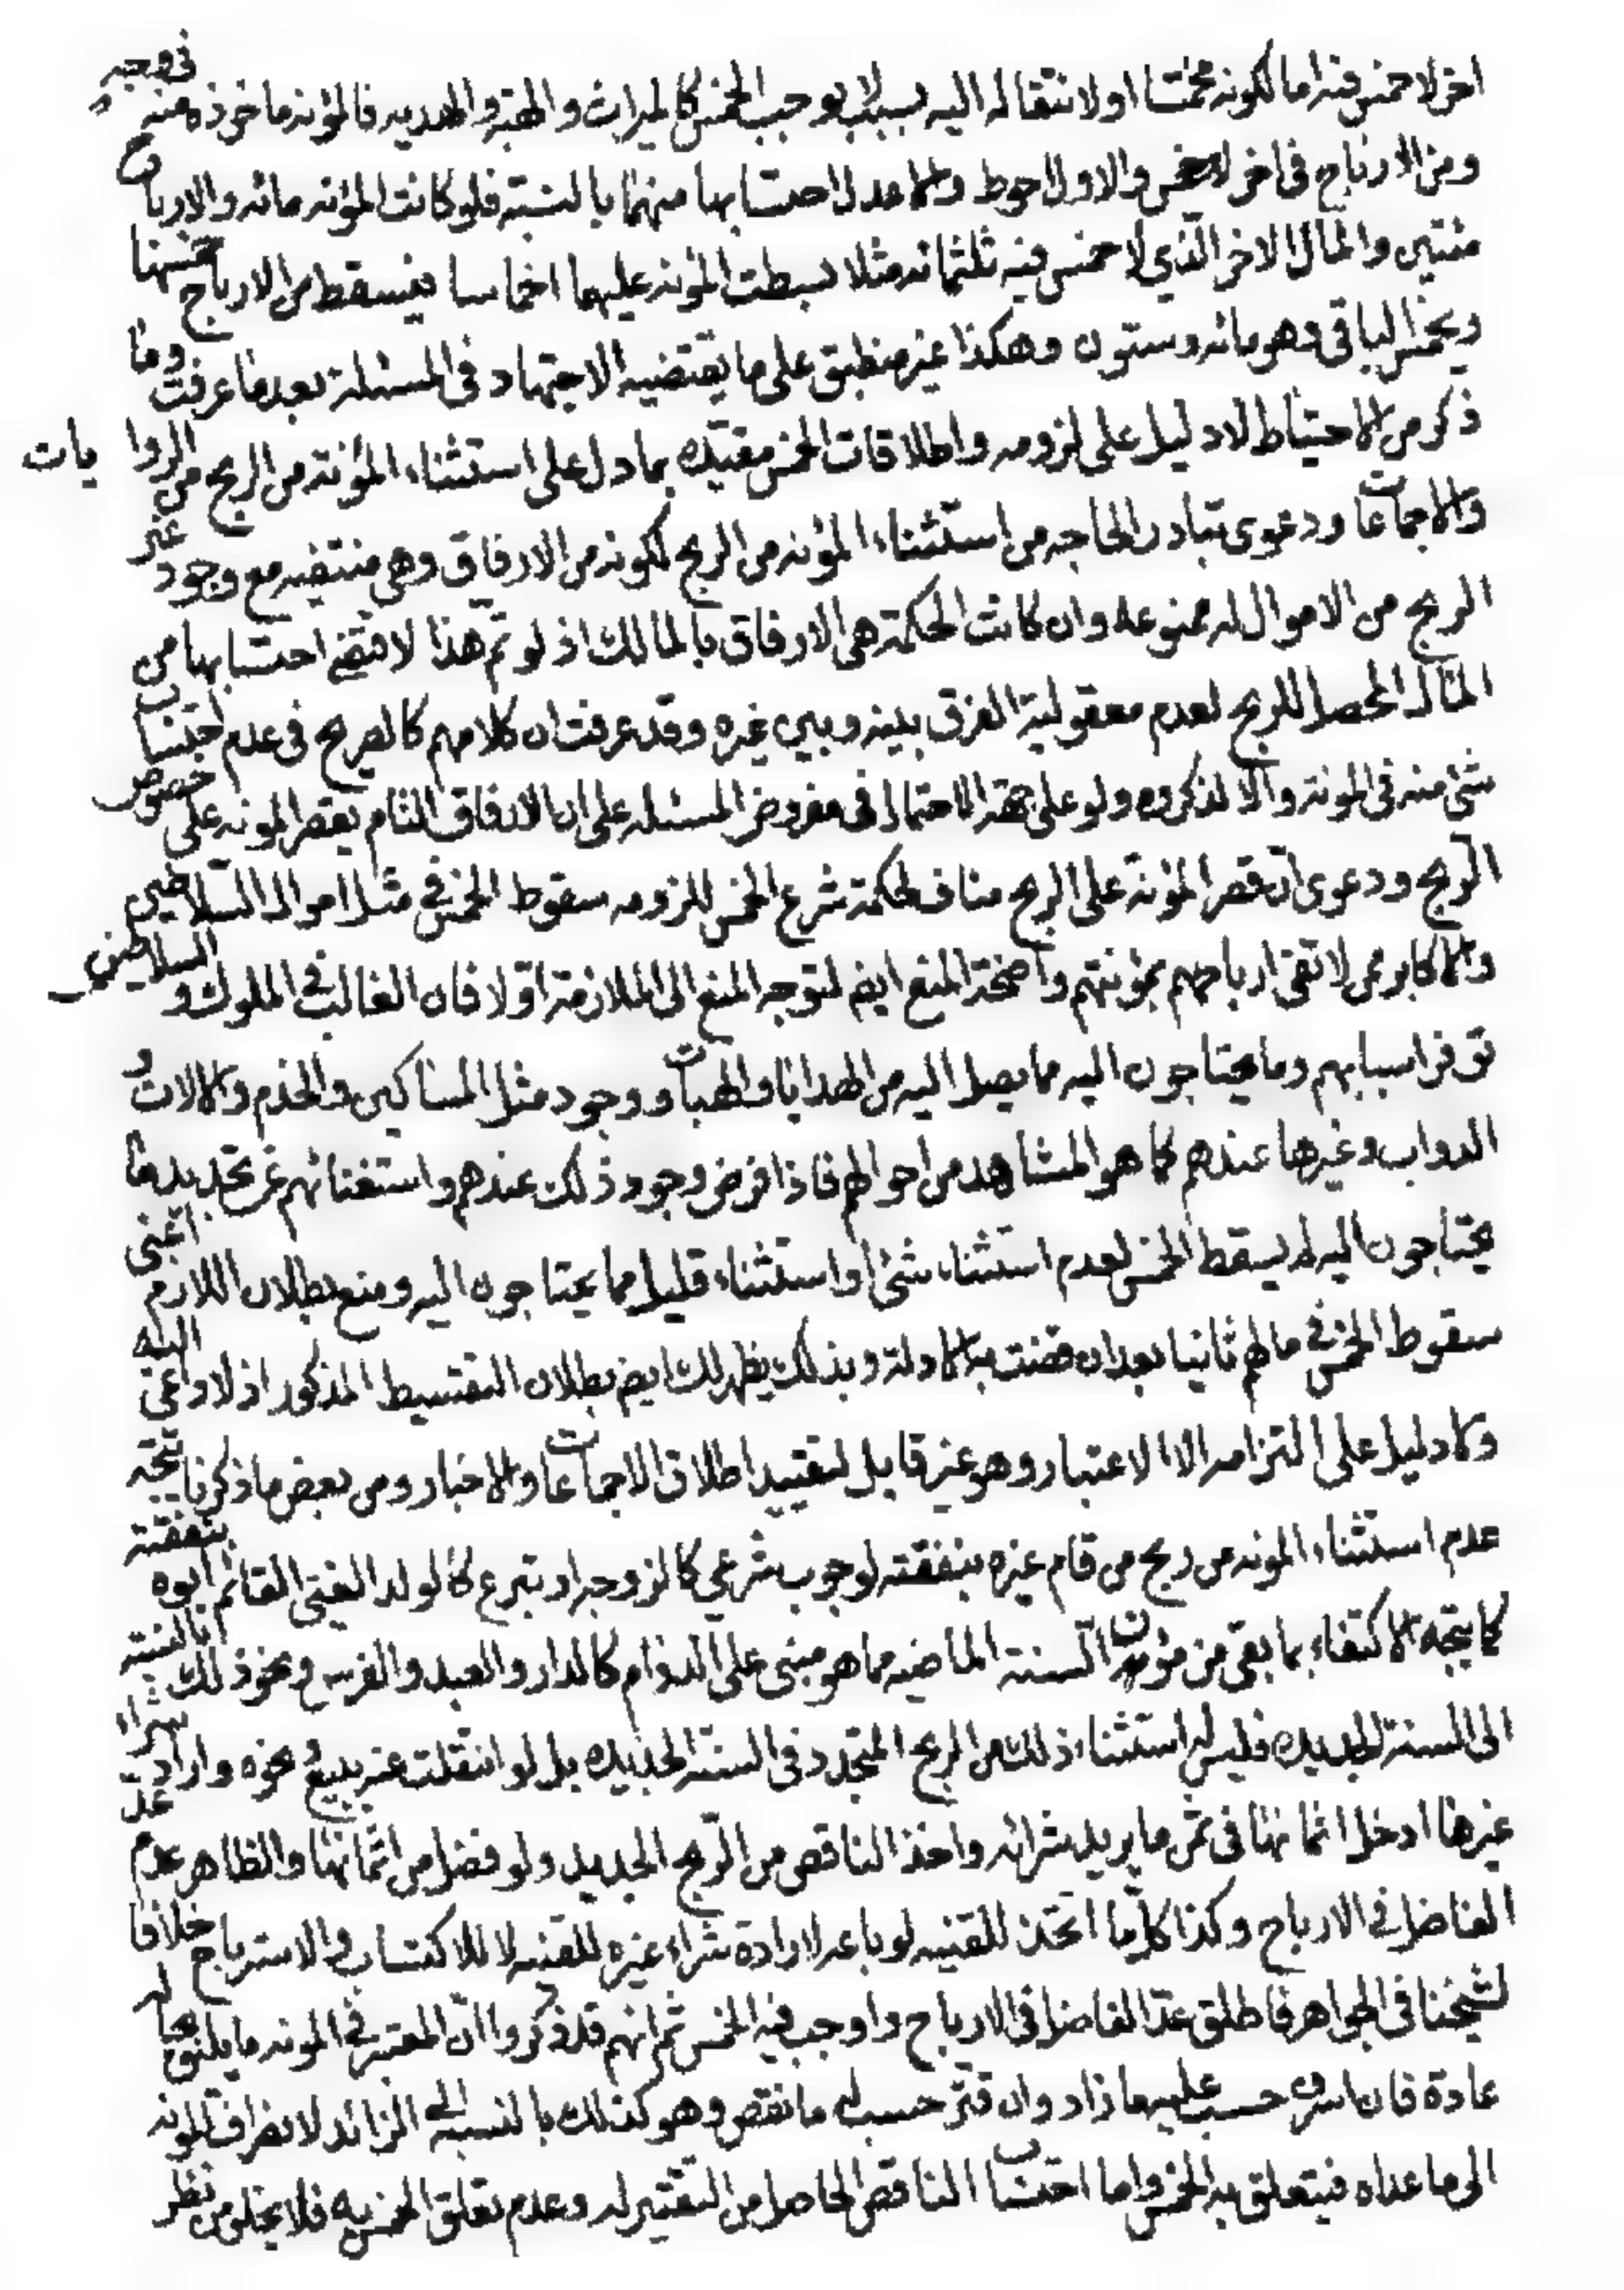 اخر لا خمس فيه اما لكونه مخمسا او لانتقاله اليه بسبب لا يوجب الخمس كالميراث والهبة والهديه فالمؤنه ماخوذه منه في وجه
ومن الارباح في اخر لا خمس والاول احوط والاعدل احتسابها منهما بالنسبة فلو كانت المؤنه مائه والارباح
مئتين والمال الاخر الذي لا خمس فيه ثلثمائه مثلا بسطت المؤنه عليهما اخماسا فيسقط من الارباح خمسها
ويخمس الباقي وهو مائه وستون وهكذا غير منطبق على ما يقتضيه الاجتهاد في المسئلة بعد ما عرفت وما
ذكر من الاحتياط لا دليل على لزومه واطلاقات الخمس مقيدة بما دل على استثناء المؤنة من الربح من الروايات
والاجماعات ودعوى تبادر الحاجه من استثناء المؤنه من الربح لكونه من الارفاق وهي منتفيه مع وجود غير
الربح من الاموال له ممنوعه وان كانت الحكمة هي الارفاق بالمالك اذ لو تم هذا لاقتضى احتسابها من
المال المحصل للربح لعدم معقولية الفرق بينه وبين غيره وقد عرفت ان كلامهم كالصريح في عدم احتساب
شئ منه في المؤنه والا لذكروه ولو على جهة الاحتمال في مفروض المسئله على ان الارفاق التام بقصر المونه على خصوص
الربح ودعوى ان قصر المؤنة على الربح مناف لحكمة شرع الخمس للزومه سقوط الخمس في مثل اموال السلاطين
والاكابر ممن لا تفى ارباحهم بمؤنتهم واضحة المنع ايضا لتوجه المنع الى الملازمة اولا فان الغالب في الملوك والسلاطين
توفر اسبابهم وما يحتاجون اليه مما يصل اليه من الهدايا والهبات ووجود مثل المساكين والخدم والالات و
الدواب وغيرها عندهم كما هو المشاهد من احوالهم فاذا فرض وجود ذلك عندهم واستغنائهم عن تجديد ما
يحتاجون اليه لم يسقط الخمس لعدم استثناء شئ او استثناء قليل مما يحتاجون اليه ومنع بطلان اللازم اعني
سقوط الخمس في مالهم ثانيا بعد ان قضت به الادلة وبذلك يظهر لك ايضا بطلان التقسيط المذكور اذ لا داعي اليه
ولا دليل على التزامه الا الاعتبار وهو غير قابل لتقييد اطلاق الاجماعات والاخبار ومن بعض ما ذكرنا يتجه
عدم استثناء المونه من ربح من قام غيره بنفقته لوجوب شرعي كالزوجه او تبرع كالولد الغني القائم ابوه بنفقته
كما يتجه الاكتفاء بما بقى من مؤن السنة الماضيه مما هو مبني على الدوام كالدار والعبد والفرس ونحو ذلك بالنسبة
الى السنة الجديده فليس له استثناء ذلك من الربح المتجدد في السنة الجديده بل لو انتقلت عنه ببيع ونحوه واراد شراء
غيرها ادخل اثمانها في ثمن ما يريد شرائه واخذ الناقص من الربح الجديد ولو فضل من اثمانها والظاهر عدم عد
الفاضل في الارباح وكذا كلما اتخذ للقنيه لو باعه لارادة شراء غيره للقنيه لا للاكتساب والاسترباح خلافا
لشيخنا في الجواهر فاطلق عد الفاضل في الارباح واوجب فيه الخمس ثم انهم قد ذكروا ان المعتبر في المونه ما يليق بحاله
عادة فان اسرف حسب عليه ما زاد وان قتر حسب له ما نقص وهو كذلك بالنسبه الى الزائد لانصراف المونه
الى ما عداه فيتعلق به الخمس واما احتساب الناقص الحاصل من التقتير له وعدم تعلق الخمس به فلا يخلو من نظر